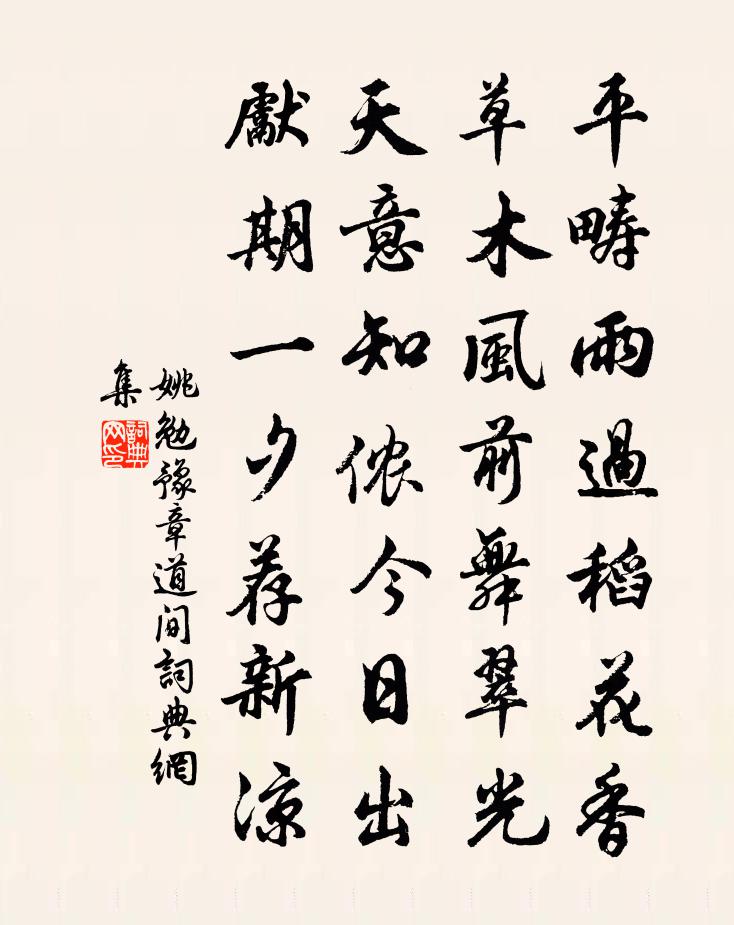 平疇雨過稻花香
草木風前舞翠光
天意知侬今日出
獻期一夕荐新涼
姚勉豫章道間詞典網
集
詞典
网印